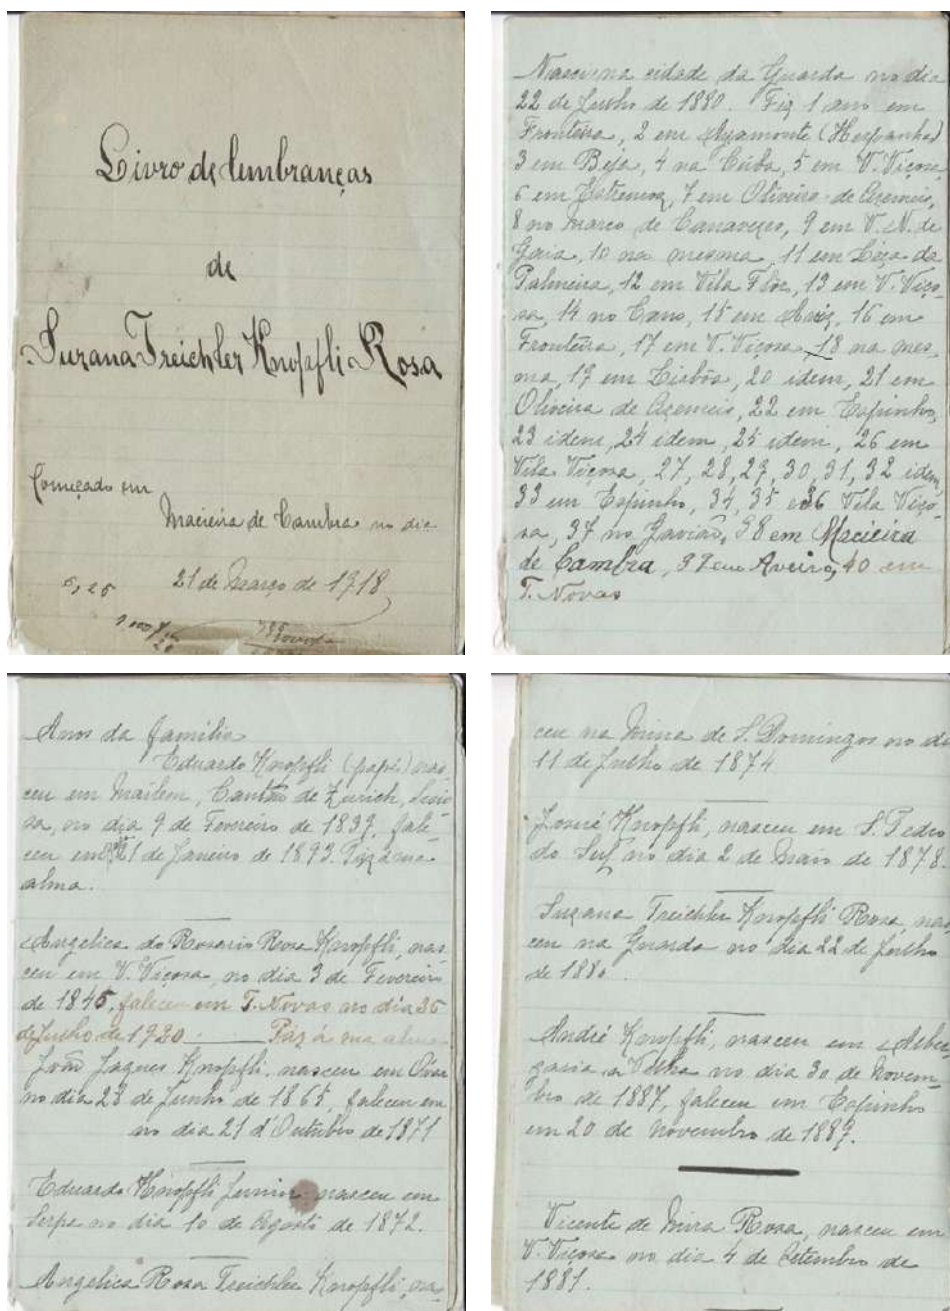 Livro de lembranças
de
Suzana Treichler Knopfli Rosa
Começado em
Macieira de Cambra no dia
21 de Março de 1918
Nasci na cidade da Guarda no dia
22 de Julho de 1880. Fiz 1 ano em
Fronteira, 2 em Ayamonte (Hespanha)
3 em Beja, 4 na Cuba, 5 em V. Viçosa
6 em Estremoz, 7 em Oliveira de Azemeis,
8 no Marco de Canavezes, 9 em V. N. de
Gaia, 10 na mesma, 11 em Leça da
Palmeira, 12 em Vila Flôr, 13 em V. Viço-
sa, 14 no Cano, 15 em Aviz, 16 em
Fronteira, 17 em V. Viçosa, 18 na mes-
ma, 19 em Lisbôa, 20 idem, 21 em
Oliveira de Azemeis, 22 em Espinho,
23 idem, 24 idem, 25 idem, 26 em
Vila Viçosa, 27, 28, 29, 30, 31, 32 idem
33 em Espinho, 34, 35 e 36 Vila Viço-
sa, 37 no Gavião, 38 em Macieira
de Cambra, 39 em Aveiro, 40 em
T. Novas
Anos da família
Eduardo Knopfli (papá) nas-
ceu em Meilen, Cantão de Zurich, Suis
sa, no dia 9 de Fevereiro de 1839, fale-
ceu em 21 de Janeiro de 1893. Paz á sua
alma.
Angelica do Rosario Rosa Knopfli, nas-
ceu em V. Viçosa, no dia 3 de Fevereiro
de 1845, faleceu em T. Novas no dia
de Julho de 1920 Paz á sua alma
João Jaques Knopfli, nasceu em Ovar
no dia 23 de Junho de 1865, faleceu em
no dia 21 d'Outubro de 1871
Eduardo Knopfli Junior nasceu em
Serpa no dia 10 de Agosto de 1872.
Angelica Rosa Treichler Knopfli, nas-
ceu na Mina de S. Domingos no di
11 de Julho de 1874
Josué Knopfli, nasceu em S. Pedro
do Sul no dia 2 de Maio de 1878.
Suzana Treichler Knopfli Rosa, nas-
ceu na Guarda no dia 22 de Julho
de 1880.
André Knopfli, nasceu em Alber
garia a Velha no dia 30 de Novem-
bro de 1887, faleceu em Espinho
em 20 de Novembro de 1889.
Vicente de Mira Rosa, nasceu em
V. Viçosa no dia 4 de Setembro de
1881.